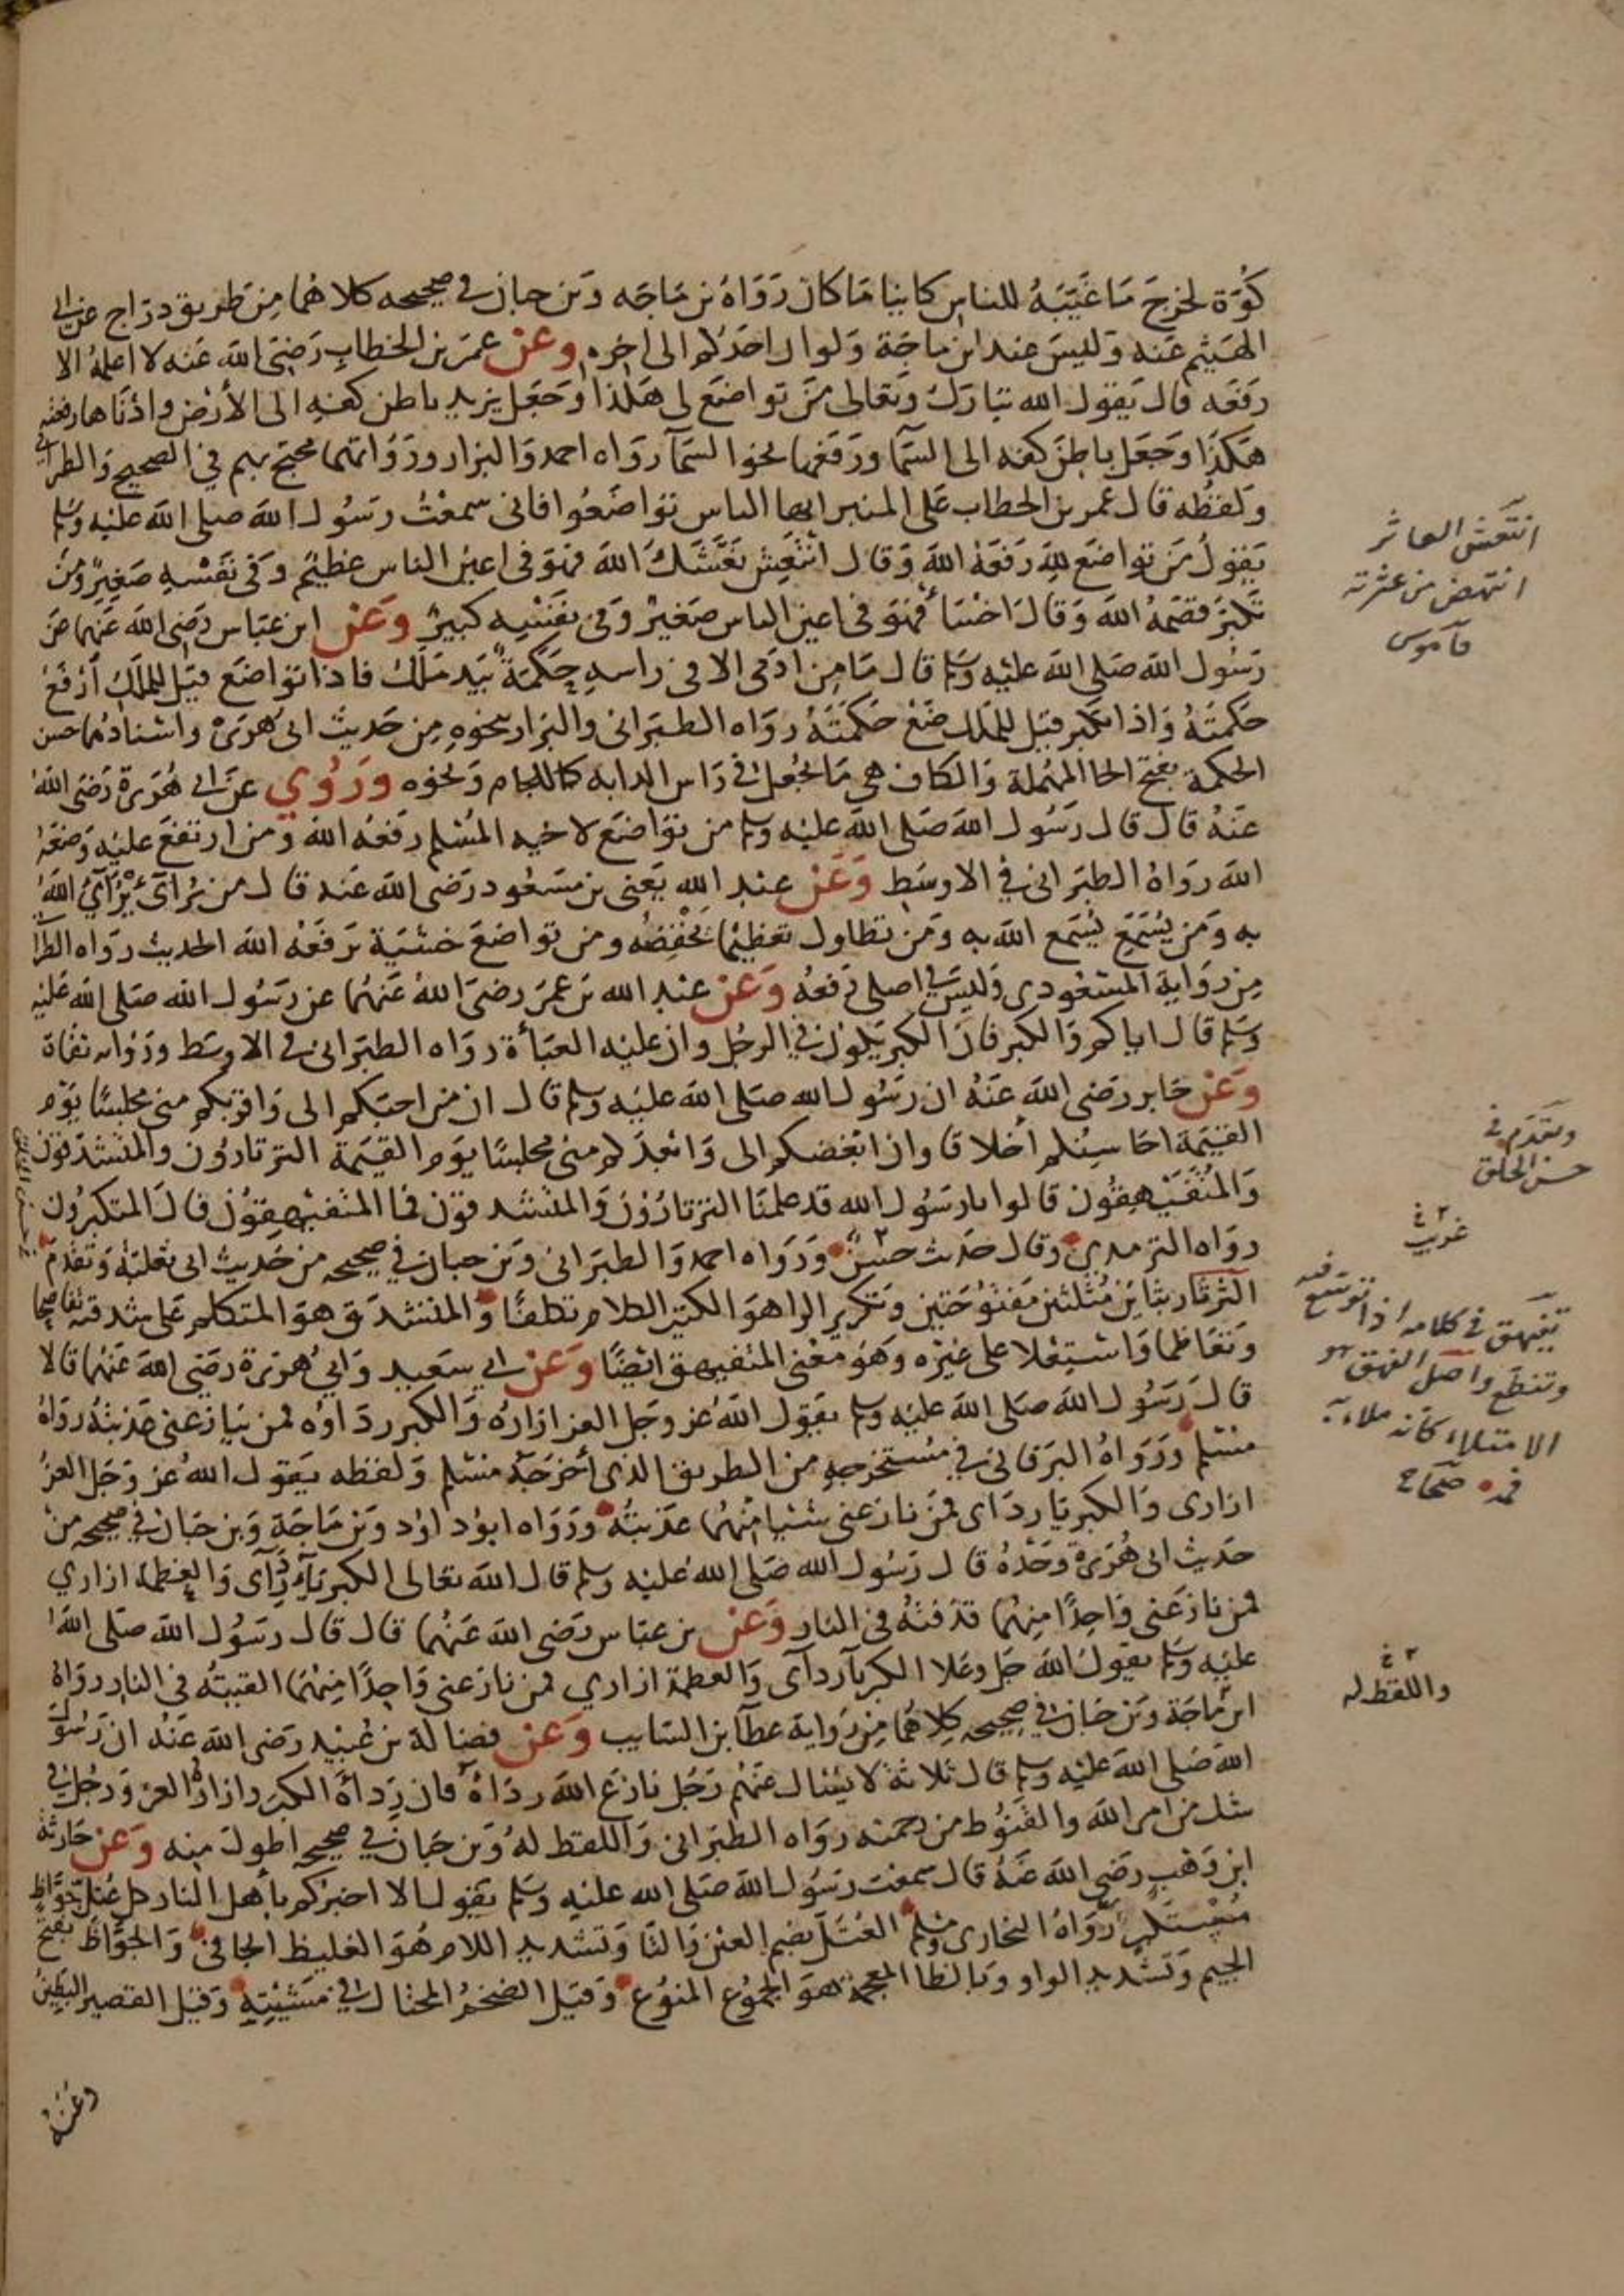 كُوَّة لخرج مَا غَيَّبَهُ للناس كاينا مَا كان رَوَاهُ بن مَاجَه وَبن حبان في صحيحه كلاهُما مِن طريق درّاج عن ابي
الهَيثم عَنه وَليسَ عند ابن ماجَة وَلو ان احَدَكم الى اخره وعَنْ عمرَ بن الخطاب رَضيَ الله عَنه لا اعلمُهُ الا
رَفَعَه قال يَقول الله تبَارك وتَعالى مَن تواضَع لي هَكَذا وَجَعَل يزيد باطن كفه الى الأرض وادْنَاها رفعته
هَكَذَا وَجَعَل باطِنَ كفه الى السَّما وَرَفَعَها نحوا السَّمآ رَوَاه احمد وَالبزار وَرُوَاتهما محتج بهم في الصحيح وَالطبراني
وَلفظُه قال عمر بن الخطاب عَلى المنبر ايها الناس تَواضَعُوا فاني سمعْتُ رسُول الله صلى الله عَليْه وسَلم
يَقولُ مَن تواضَع لِلّهِ رَفعَهُ اللهُ وَقال انْتَعِش نَعَشَكَ الله فهوَ في اعين الناس عظيم وَفي نفسْهِ صَغيرٌ وَمَن
تَكبَّر قصَمَهُ اللهَ وَقالَ اخْسَأ فهوَ في اعين الناس صَغيْر وَفي نفسِهِ كبيرٌ وَعَنِ ابن عبَاس رَضيَ الله عَنهُما عَن
رَسُول الله صَلى الله عليْه وسَلم قال مَا مِن ادَمي الا في راسهِ حَكَمَةٌ بيَد مَلك فاذا تواضَع قيل للملك ارْفع
حَكمتَهُ وَاذا تكبر قيل للملك ضَعْ حَكمَتَهُ روَاه الطبَراني والبزار بنحوهِ مِن حَديث ابي هُرَيرَة واسْنادُهُما حسن
الحكمة بفتح الحا المهملة وَالكاف هي مَا يُجْعل في رَاس الدابه كاللجام وَنحوه وَرُوي عَن ابي هُرَيرَة رَضيَ اللهُ
عَنهُ قال قال رَسُول الله صَلى اللهَ عليْه وسلم من تواضَع لاخيه المُسْلم رفعَهُ الله وَمن ارتفَعَ عليْه وَضعَهُ
الله رَوَاهُ الطبَراني في الاوسَط وَعَنْ عبْد اللهِ يَعني بن مسْعُود رَضي الله عَنه قال من يُرَائ يُرَآئي اللهُ
به وَمَن يُسَمّع يُسَمع الله به وَمن تطاول تعَظيْما يخْفِضهُ ومن تواضعَ خشْيَة يَرفَعْه الله الحديث روَاه الطبرا
مِن روَايةِ المسْعُودي وَليسَ في اصلي رَفعُهُ وَعَنْ عبْد الله بن عمَرَ رضيَ اللهُ عَنهُما عن رَسُول الله صَلى الله عَليْه
وَسَلم قال اياكم وَالكبر فان الكبر يَكون في الرجُل وان عليْه العبَأة روَاه الطبَراني في الاوسَط وَرُواته ثقاة
وَعَنْ جَابر رَضيَ الله عَنْهُ ان رَسُول الله صَلى الله عليْه وسلم قال ان من احبّكم الى وَاقربكم مني مجلسًا يَوم
القيَمَة احَاسِنُكم أخلاقا وان ابغضكم الى وَابعَدَكم مني مجلسًا يَوم القيَمة الثرثارون وَالمتشدقون
وَالمُتفَيْهِقُون قالوا يا رسُول الله قد علمنَا الثرثارُوْن وَالمتشدقوْن فما المتفيْهقوُن قالَ المتكبرُون
روَاه الترمذي وقال حَديث حسَنٌ وَرَوَاه احمد وَالطبَراني وَبن حبان في صحيحه من حَديث ابي ثعْلبَة وَتقدم
الثرثار بثاين مُثلثتين مَفتوُحَتين وَتكرير الرا هوَ الكثير الكلام تكلفًا وَالمتشدق هوَ المتكلم عَلى شدقه تفاصحا
وَتعَاظما وَاسْتعْلا على غيْره وَهوَ معْنى المتفيهق ايْضًا وَعَنْ ابي سَعيد وَابي هُرَيرَة رَضيَ اللهَ عَنهُما قالا
قال رَسُول الله صَلى الله عليه وسلم يقول اللهُ عَز وَجَل العز ازارهُ وَالكبر ردَاوُه فمن ينازعني عَذبتُهُ رَوَاهُ
مسْلم وَرَوَاهُ البَرقاني في مُستخرَجهِ من الطريق الذي أخرَجَهُ مسْلم وَلفظه يَقول اللهُ عَز وَجَل العزُ
ازاري وَالكبريا ردَاي فمَن نازعَني شيْئا مِنهُما عَذبتُهُ وَرَوَاه ابوُ داوُد وَبن مَاجَة وَبن حبَان في صحيحه من
حَديث ابي هُرَيرَة وَحْدَهُ قال رَسُول الله صَلى الله عليْه وسلم قال الله تعَالى الكبريَآء رِدَآى وَالعَظمة ازاري
فمن نازعَني وَاحِدًا مِنهُما قذفتهُ في النار وَعَن بن عبَاس رَضيَ الله عَنهُما قال قال رسُول الله صَلى اللهُ
عليْه وَسَلم يقولُ اللهُ جَل وعَلا الكبريآ ردآى وَالعظمة ازاري فمن نازعني وَاحدًا مِنهُما القيتُه في النار روَاهُ
ابن مَاجَة وَبن حَبان في صحيحه كلاهُما مِن رِوَاية عطآ بن السَايب وَعَن فضالة بن عُبيْد رَضي الله عَنهُ ان رَسُول
الله صَلى اللهَ عليْه وسلم قال ثلاثة لا يسْئال عَنهُم رَجُل نازعَ الله ردَاهُ فان رِدآءَهُ الكبر وازارُهُ العز وَرجُل في
شك من امر الله وَالقنوُط من رحمته روَاه الطبَراني وَاللفظ لهُ وَبن حبَان في صحيحه اطولَ منه وَعَن حَارثة
ابن وَهْب رَضي الله عَنهُ قال سمعْت رسُول الله صَلى الله عليْه وَسَلم يقول الا اخبرُكم بأهل النار كل عُتلّ جَوَّاظ
مُسْتكبر رَوَاهُ البخارى ومُسْلم العُتل بضم العيْن وَالتا وَتشديد اللام هُوَ الغليظ الجافي وَالجوَّاظ بفتح
الجيم وَتشديد الواو وَبالظا المعجمة هوَ الجمُوع المنوُع وَقيل الضخمُ المختال في مشيْتِهِ وَقيل القصيرُ البَطِينُ
وعَنْهُ
انتعش العاثر
انتهض من عثرته
قاموس
وتقدم في
حسن الخلق
غريب
تفيهق في كلامه اذا توسع فيه
وتنطع واصل الفهق هو
الامتلاء كانه ملاء به
فمه صحاح
واللفظ له